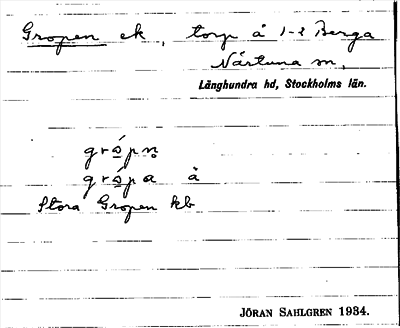 Gropen ek, torp å 1-2 Berga
Närtuna sn,
Långhundra hd, Stockholms län.
gró̲pn̥
gró̲pa å
Stora Gropen kb
JÖRAN SAHLGREN 1934.